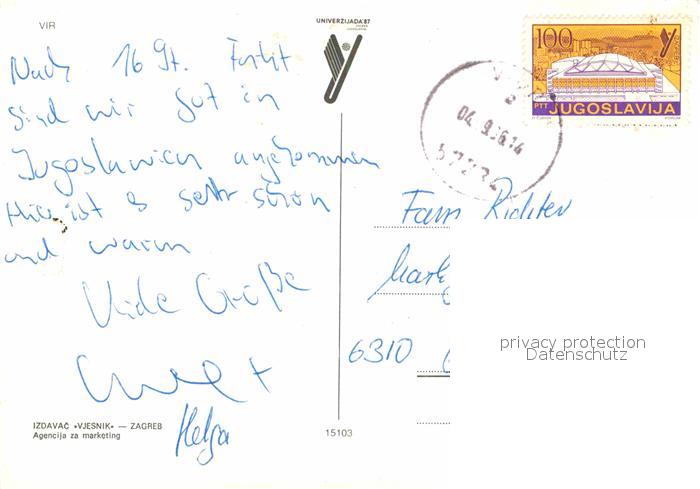 VIR
UNIVERZIJADA'87
ZAGREB
YUGOSLAVIA
Nach 16 St. Fahrt
sind wir gut in
Jugoslawien angekommen
Hier ist es sehr schön
und warm
Viele Grüße
+
Helga
IZDAVAČ »VJESNIK« — ZAGREB
Agencija za marketing
15103
100
PTT JUGOSLAVIJA
04.9.86.14
57234
Fam Richter
6310
privacy protection
Datenschutz